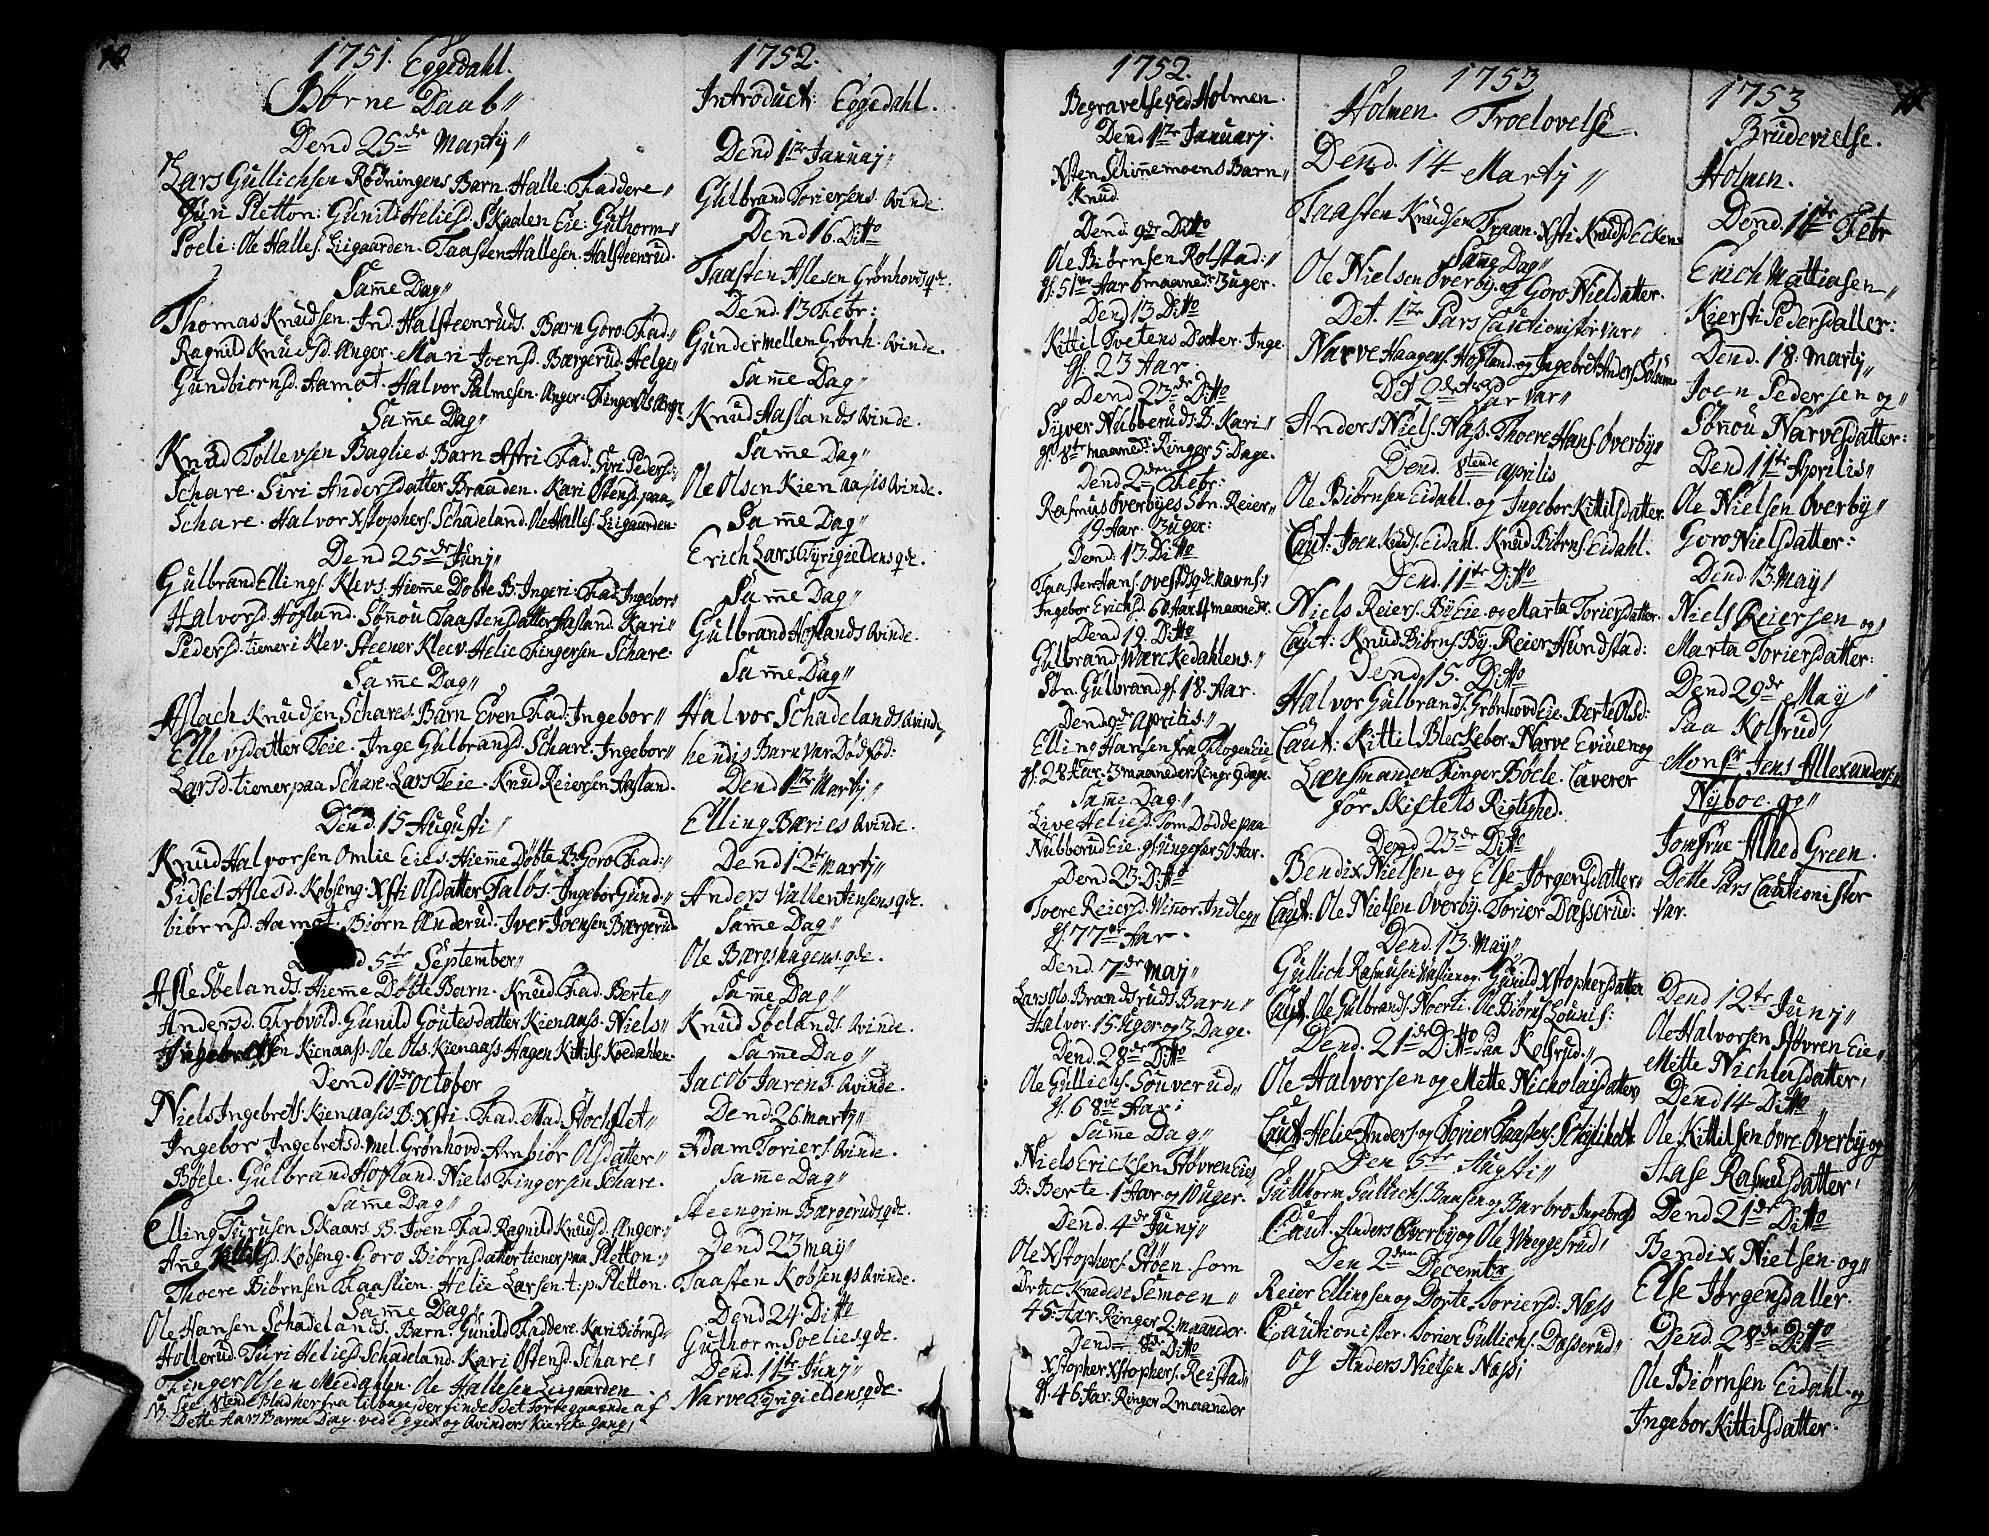 10
1751. Eggedahl.
Børne Daab"
Dend 25de Martij"
Lars Gullichsen Rødningens Barn. Halle: Faddere"
Gun Pletton: Gunild Helies. Skaalen Eie: Guthorm"
Soeli: Ole Halles. Liigaarden. Taasten Hallesen. Halsteenrud.
Samme Dag"
Thomas Knudsen. Ind. Halsteenruds. Barn Goro. Fad"
Ragnild Knudsd. Anger. Mari Joensd. Bærgerud. Helge"
Gundbiornsd. Aamot. Halvor Palmesen. Anger.
Samme Dag"
Knud Tollevsen Baglies Barn Astri Fad. Syri Pedersd:
Schare. Siri Andersdatter Braaden. Kari Østensd. paa"
Schare. Halvor Xstophers. Schadeland. Ole Halles. Liigaarden.
Dend 25de Junij"
Gulbrand Ellings. Klevs. Hiemme Døbte B. Ingeri. Fad. Ingebor"
Halvorsd. Hofland. Sønnou Taastensdatter Hasland. Kari"
Pedersd. tieneri Klev. Steener Kleev Helie Fingersen Schare.
Samme Dag"
Aslach Knudsen Schares. Barn Even Fad. Ingebor"
Ellevsdatter Teie. Inge Gulbrandsd. Schare. Ingebor"
Larsd. tiener paa Schare. Lars Teie. Knud Reiersen Hasland.
Dend. 15 Augusti"
Knud Halvorsen Omlie Eies. Hiemme Døbte B. Goro Fad:"
Sidsel Aslesd. Kobseng. Xsti Olsdatter Taløs. Ingebor Gund"
biørnsd. Aamot. Biørn Anderud. Iver Joensen Bærgerud.
5te September"
Asle Sbelands. Hiemme Døbte Barn. Knud. Fad. Berte"
Andersd. Frøvold. Gunild Goutesdatter Kienaass. Niels"
Ingebretsen Kienaass. Ole Ols. Kienaass. Hagen Kittils. Koedahlen.
Dend 10de October
Niels Ingebrets. Kienaasis B. Xsti. Fad. Mad. Stochflet"
Ingebor Ingebretsd. mel. Grønhovd. Ambiør Olsdatter"
Bøele. Gulbrand Hofland. Niels Fingersen Schare.
Samme Dag"
Elling Turusen Skaars. B. Joen. Fad. Ragnild Knudsd. Anger"
Ane Kittilsd. Kobseng. Goro Biørnsdatter tiener paa Pletton."
Thoere Biørnsen Haastien. Helie Larsen t: p: Pletton.
Samme Dag"
Ole Hansen Schadelands. Barn. Gunild Faddere. Kari Biørnsd"
Hollerud. Turi Heliesd. Schadeland. Kari Østensd. Schare"
Finger Olsen Medalen. Ole Hallesen Liigaarden
NB. See 8tende Blad her fra tilbage der findes det forregaaende af
Dette Aars Barne Daab ved Eggedl og Qvinders Kiercke gang/
1752.
Introduct: Eggedahl.
Dend 1te Januaij"
Gulbrand Toriersens. Qvinde.
Dend 16. Ditto
Taasten Aslesen Grønhovds qde.
Dend. 13 Febr:
Gunder mellem Grønh. Qvinde.
Samme Dag"
Knud Haslands Qvinde.
Samme Dag"
Ole Olsen Kienaasis Qvinde.
Samme Dag"
Erich Lars. Tyrigieldens qde.
Samme Dag"
Gulbrand Hoflands Qvinde.
Samme Dag"
Halvor Schadelands Qvinde,
hendis Barn var Dødfød:
Dend 1te Martij"
Elling Bæries Qvinde.
Dend 12te Martij"
Anders Vallentinsens qde.
Samme Dag"
Ole Bærgshagens qde.
Samme Dag"
Knud Sbelands Qvinde.
Samme Dag"
Jacob Jarens. Qvinde.
Dend. 26 Martij"
Adam Toriers. Qvinde.
Samme Dag"
Steengrim Bærgeruds qde.
Dend 23 May"
Taasten Kobsengs Qvinde.
Dend 24. Ditto
Guthorm Soelies qde.
Dend 11te Junij"
Narve Tyrigieldens qde.
1752.
Begravelse ved Holmen.
Dend 1te Januarj.
Xsten Schimmemoens Barn"
Knud
Dend. 9de Ditto
Ole Biørnsen Rolstad:"
gl. 51te Aar 6 maaneder 3 uger.
Dend 13 Ditto
Kittil Tvetens Dotter. Inge
gl. 23 Aar.
Dend 23de Ditto
Syver Nubberuds B. Kari"
gl. 8te maaneder Ringer 5 Dage.
Dend 2den Febr:
Rasmus Overbyes Søn. Reier"
19 Aar. 6 uger:
Dend. 13. Ditto
Taasten Hans. Ovestds qde. Navns:"
Ingebor Erichsd. 60 Aar 4 maaneder.
Dend 19. Ditto
Gulbrand Wærckedahlens."
Søn. Gulbrand gl. 18. Aar.
Dend 9de Aprilis"
Elling Hansen fra Flogen Eie
gl. 28 Aar. 3 maaneder Ringr 9 dage.
Samme Dag"
Live Heliesd. som Dødde paa
Nubberud Eie. gl. ungefær 50 Aar.
Dend 23. Ditto
Toere Reiersd. Winor. Indleg"
gl. 77ve Aar.
Dend. 7de Maj"
Lars Ols. Brandsruds Barn"
Halvor. 15 Uger og 3. Dage.
Dend. 28de Ditto
Ole Gullichs. Sønverud"
gl. 68ve Aar:
Samme Dag"
Niels Ericksen Støvren Eies"
B: Berte. 1 Aar og 10 uger.
Dend. 4de Junj"
Ole Xstophers. Støen. som
Drucknede Semoen"
45. Aar. Ringer 2 maaneder.
Dend 8de Ditto
Xstopher Xstophers. Reistad"
gl. 46 Aar. Ringer 2 maaneder
1753
Holmen. Troelovelse.
Dend. 14 Martij"
Taasten Knudsen Fraan. Xsti Knudsd. Ecken"
Samme Dag"
Ole Nielsen Overby og Goro Nielsdatter.
Det. 1te Pars Cautionister var"
Narve Haagens. Hofland. og Ingebret Anders. Solum
Det 2det Par var"
Anders Niels. Næss. Thoere Hans. Overby"
Dend. 8tende Aprilis
Ole Biørnsen Eidahl. og Ingebor Kittilsdatter.
Caut: Joen Knuds. Eidahl. Knud Biørns. Eidahl:
Dend. 11te Ditto
Niels Reiers. By Eie og Marta Toriersdatter.
Caut: Knud Biørns. By. Reier Hundstad:
Dend 15. Ditto
Halvor Gulbrands. Grønhovd Eie. Berte Olsd:
Caut: Kittil Bleckebør. Narve Eviuen og
Lænsmanden Finger Bøele. Caverer
for Skiftets Rigtighed.
Dend 23de Ditto
Bendix Nielsen og Else Jørgensdatter"
Caut: Ole Nielsen Overby. Torier Dasserud:
Dend. 13. May"
Gullich Rasmusen Vaslien og Gunild Xstophersdatter
Caut. Ole Gulbrands. Noerli. Ole Biørns. Lounis:
Dend. 21de Ditto paa Kolsrud."
Ole Halvorsen og Mette Nickolaisdatter
Caut. Helie Anders. og Torier Taastens. Schyliholt.
Den 5te Augsti"
Gulhorm Gullichs. Baasen og Barbro Ingebrsd
Caut. Anders Overby og Ole Weggesrud/
Den 2den Decembr
Reier Ellingsen og Dorte Toriersd. Næss
Cautionister. Torier Gullichs. Dasserud"
og Anders Nielsen Næss/
1753
11
Brudevielse.
Holmen.
Dend. 11te Febr
Erich Mattiasen"
Kiersti Pedersdatter:
Dend. 18. Martij"
Joen Pedersen og"
Sønnou Narvesdatter:
Dend 11te Aprilis"
Ole Nielsen Overby"
Goro Nielsdatter:
Dend. 13 May/
Niels Reiersen og
Marta Toriersdatter:
Dend 29de May"
Paa Kolsrud/
Monsr Jens Allexandersen
Nyboe. og"
Jomfrue Alhed Green.
Dette Pars Cautionister
Var.
Dend 12te Junj"
Ole Halvorsen Støvren Eie"
Mette Nichlersdatter,
Dend 14 Ditto
Ole Kittilsen øvre Overby og
Stase Rasmusdatter,
Dend 21de Ditto
Bendix Nielsen og"
Else Jørgensdatter.
Dend. 28de Ditto
Ole Biørnsen Eidahl. og
Ingebor Kittilsdatter.